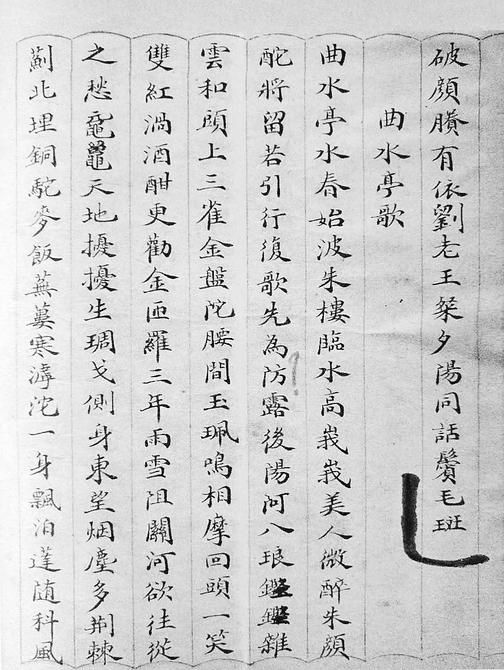 破顏賸有依劉老王粲夕陽同話鬢毛斑
曲水亭歌
曲水亭水春始波朱樓臨水高峩峩美人微醉朱顏
酡將留若引行復歌先為防露後陽阿八琅雜
雲和頭上三雀金盤陀腰間玉珮鳴相摩回頭一笑
雙紅渦酒酣更勸金叵羅三年雨雪阻關河欲往從
之愁黿鼉天地擾擾生琱戈側身東望烟塵多荊棘
薊北埋銅駝麥飯蕪蔞寒滹沱一身飄泊蓬隨科風